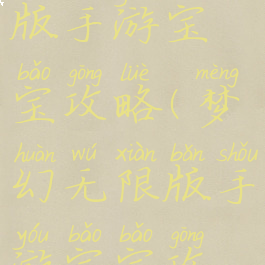 版手游宝
bǎo gōng lüè mèng
宝攻略(梦
huàn wú xiàn bǎn shǒu
幻无限版手
yóu bǎo bǎo gōng
游宝宝攻